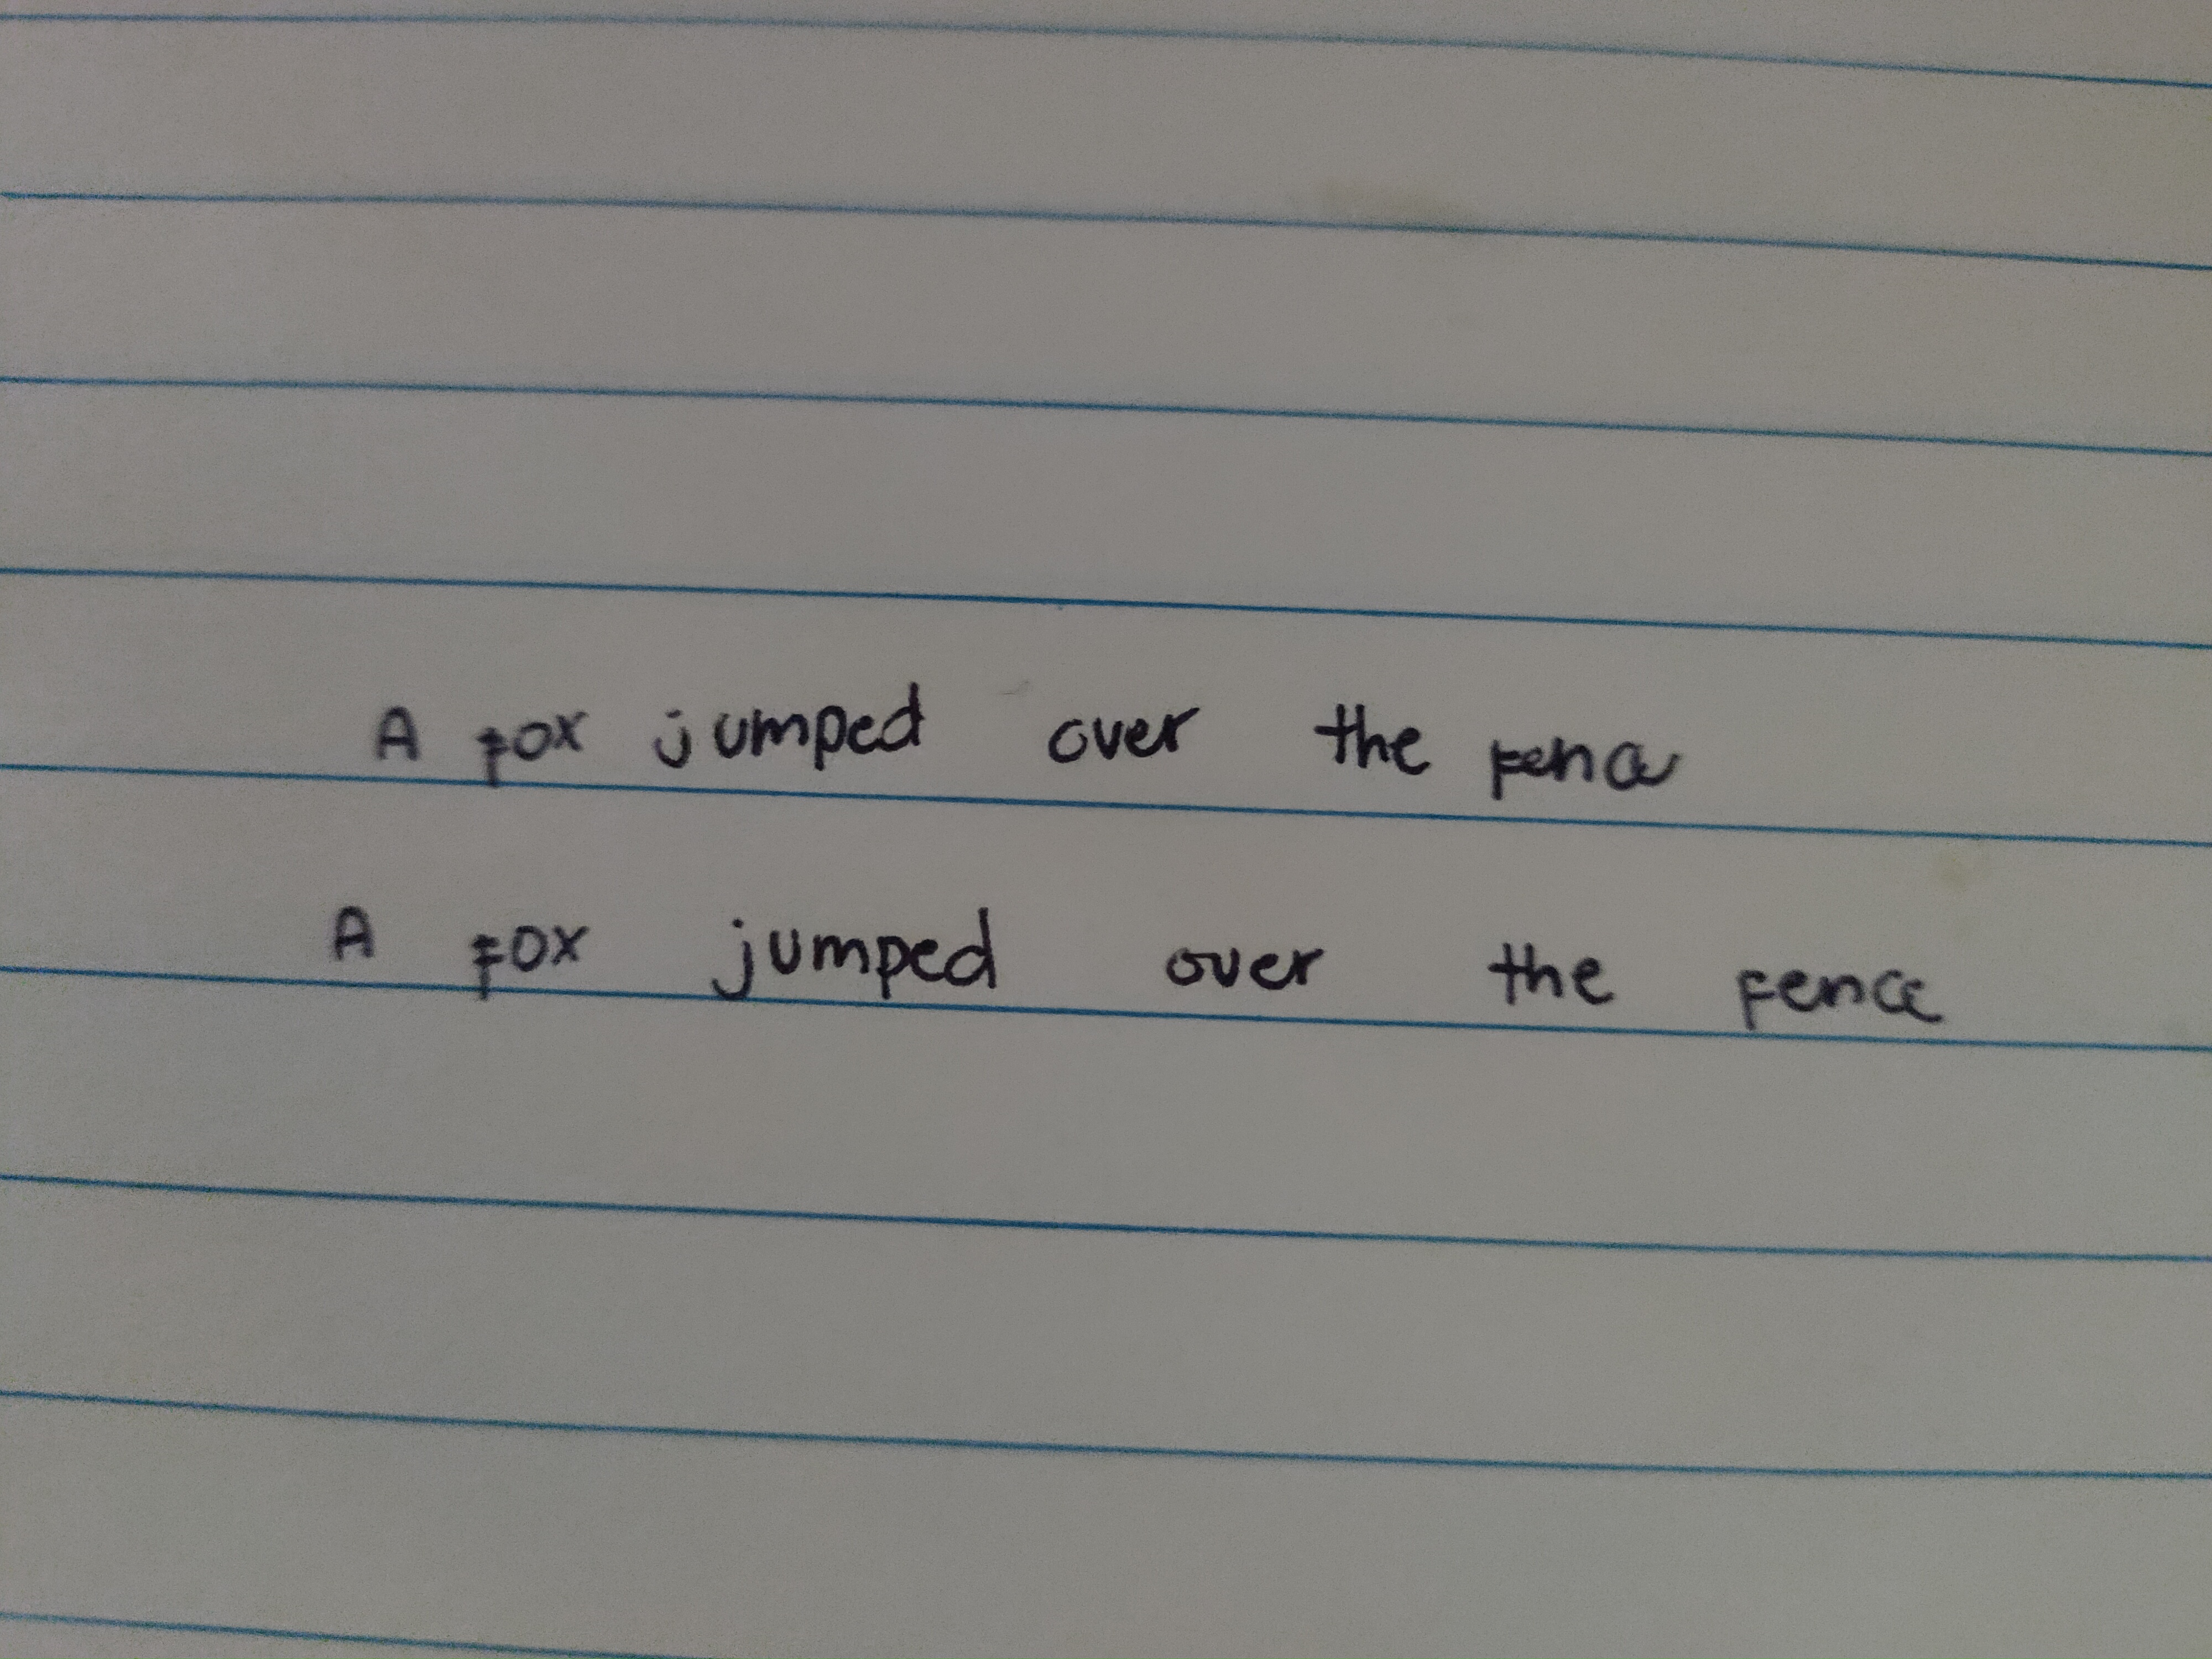 A fox jumped over the fence
A fox jumped over the fence